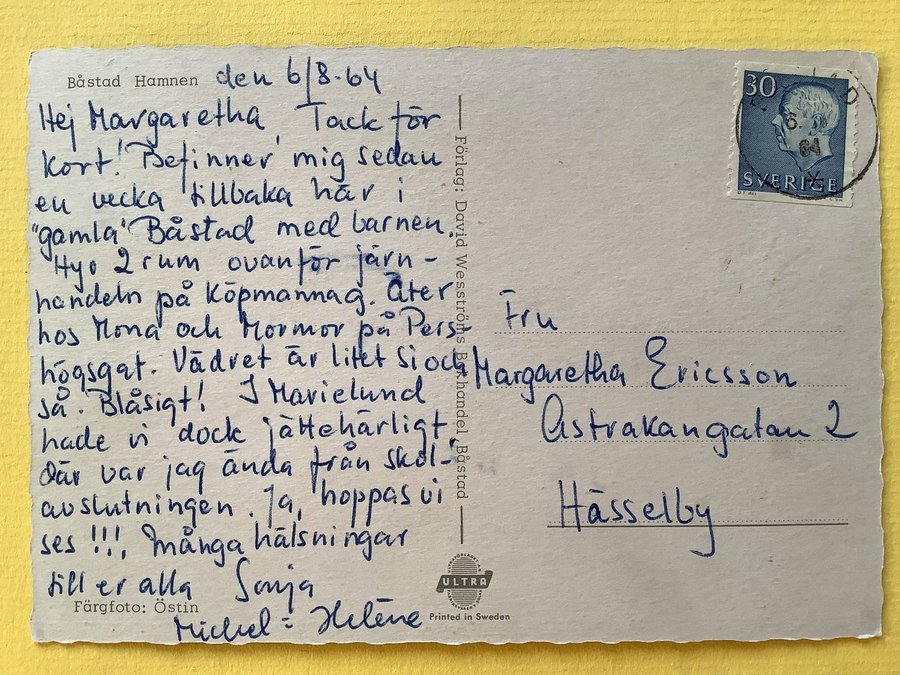 Båstad Hamnen den 6/8-64
Hej Margaretha, Tack för
kort! Befinner mig sedan
en vecka tillbaka här i
"gamla" Båstad med barnen.
Hyr 2 rum ovanför järn-
handeln på Köpmannag. Äter
hos Mona och Mormor på Pers-
högsgat. Vädret är litet si och
så. Blåsigt! I Marielund
hade vi dock jättehärligt
där var jag ända från skol-
avslutningen. Ja, hoppas vi
ses !!! Många hälsningar
till er alla Sonja
Michel - Heléne
Färgfoto: Östin
Förlag: David Wesströms Bokhandel Båstad
ULTRA
Printed in Sweden
30
SVERIGE
6. 8
64
Fru
Margaretha Ericsson
Astrakangatan 2
Hässelby